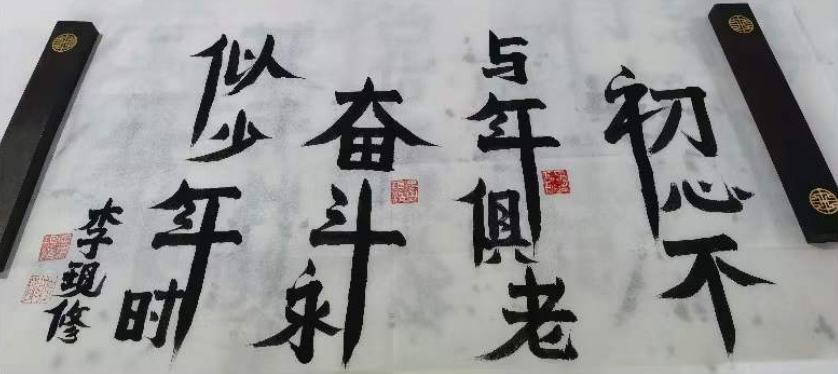 初心不
与年俱老
奋斗永
似少年时
李现修